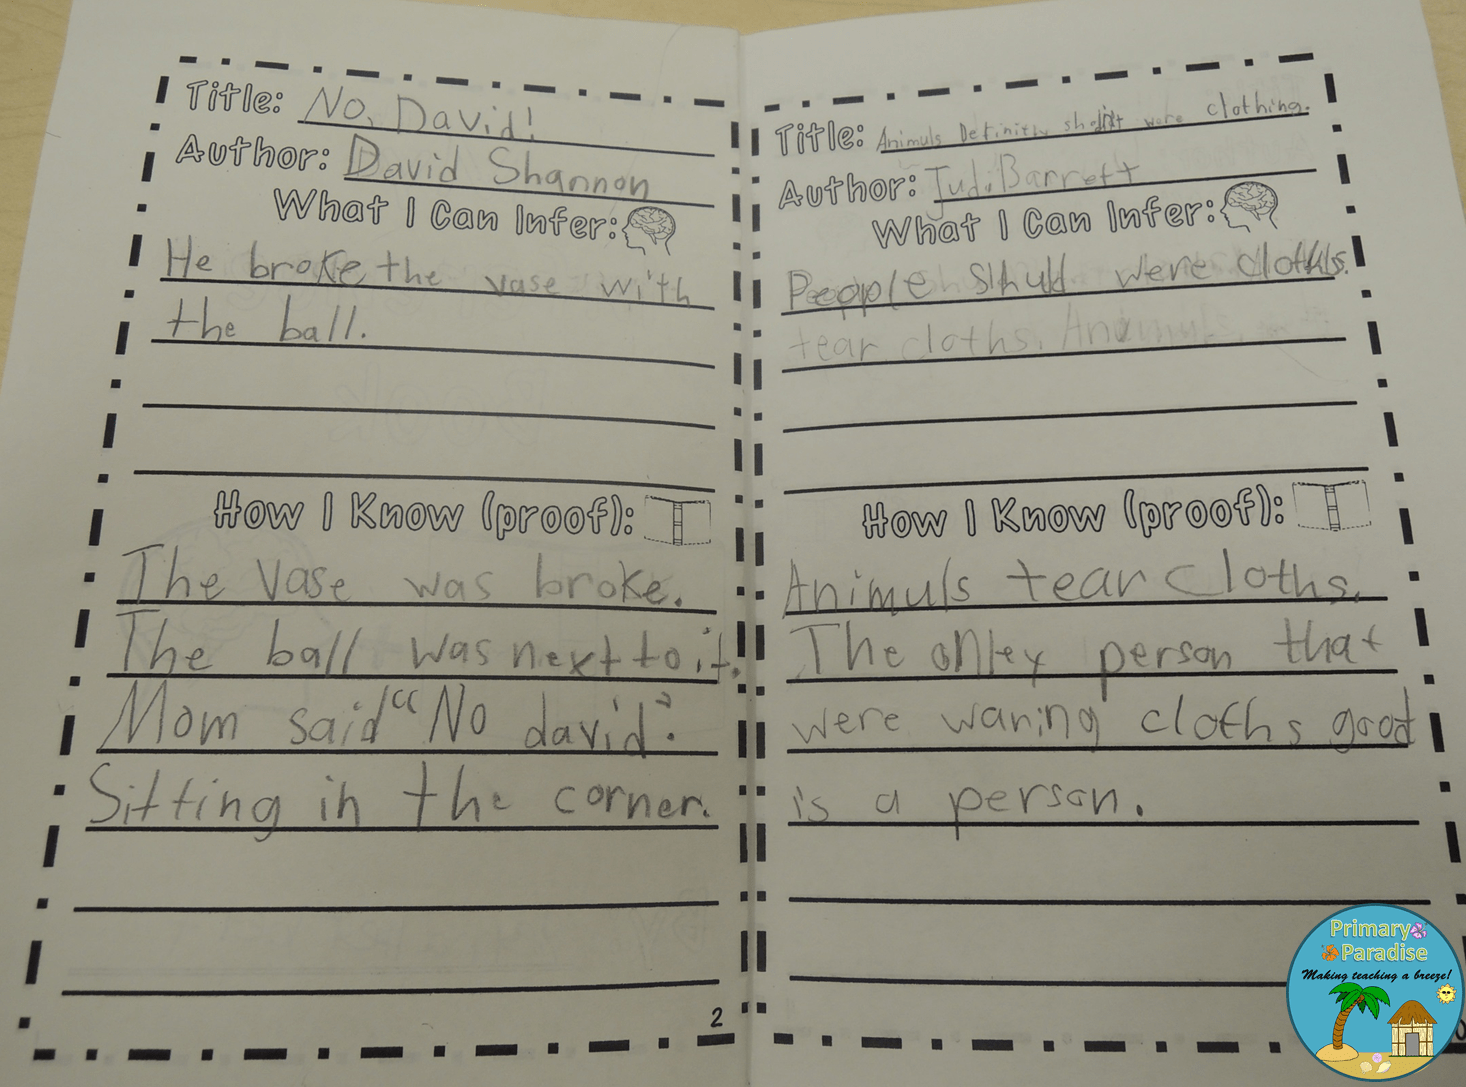 Title: No, David!
Author: David Shannon
What I Can Infer:
He broke the vase with
the ball.
How I Know (proof):
The vase was broke.
The ball was next to it.
Mom said "No david".
Sitting in the corner.
2
Title: Animuls Definitly shouldn't were clothing.
Author: Judi Barrett
What I Can Infer:
People shuld were cloths.
tear cloths. Animuls
How I Know (proof):
Animuls tear cloths.
The onley person that
were waring cloths good
is a person.
Primary
Paradise
Making teaching a breeze!